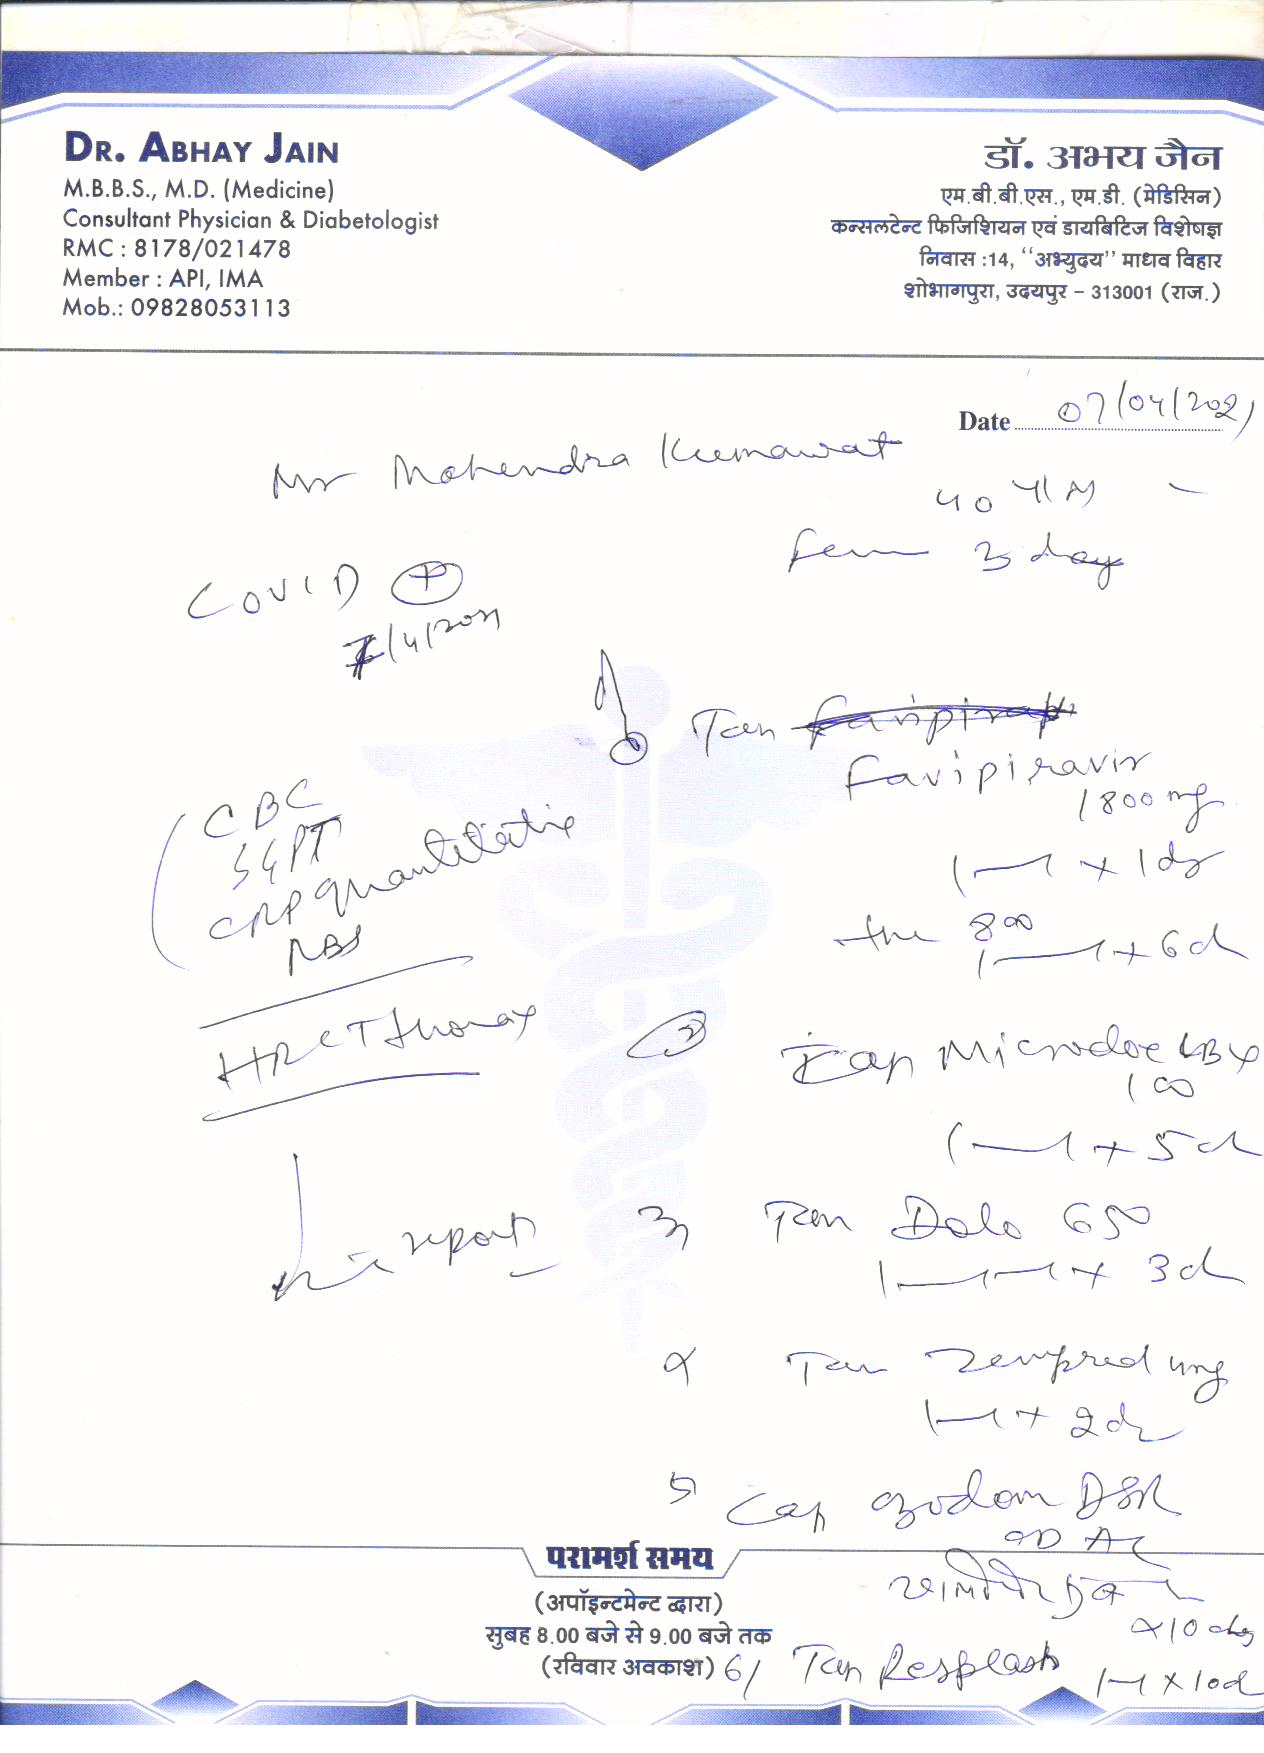 DR. ABHAY JAIN
M.B.B.S., M.D. (Medicine)
Consultant Physician & Diabetologist
RMC : 8178/021478
Member : API, IMA
Mob.: 09828053113
डॉ. अभय जैन
एम.बी.बी.एस., एम.डी. (मेडिसिन)
कन्सलटेन्ट फिजिशियन एवं डायबिटिज विशेषज्ञ
निवास :14, ‘‘अभ्युदय’’ माधव विहार
शोभागपुरा, उदयपुर – 313001 (राज.)
Date 07/04/2021
Mr Mahendra Kumawat
40 Y/M
3 day
COVID +
7/4/2021
Tab
Favipiravir
1800 mg
1—1 x 1d
800
1—1 + 6d
CBC
SGPT
CRP quantitative
RBS
HRCT thorax
report
2
Cap Microdox LBX
100
1—1 + 5d
3 Tab Dolo 650
1—1—1 x 3d
4 Tab Zempred 4mg
1—1 + 2d
5 Cap DSR
OD AC
x 10 day
6/ Tab Resplash 1—1 x 10d
परामर्श समय
(अपॉइन्टमेन्ट द्वारा)
सुबह 8.00 बजे से 9.00 बजे तक
(रविवार अवकाश)